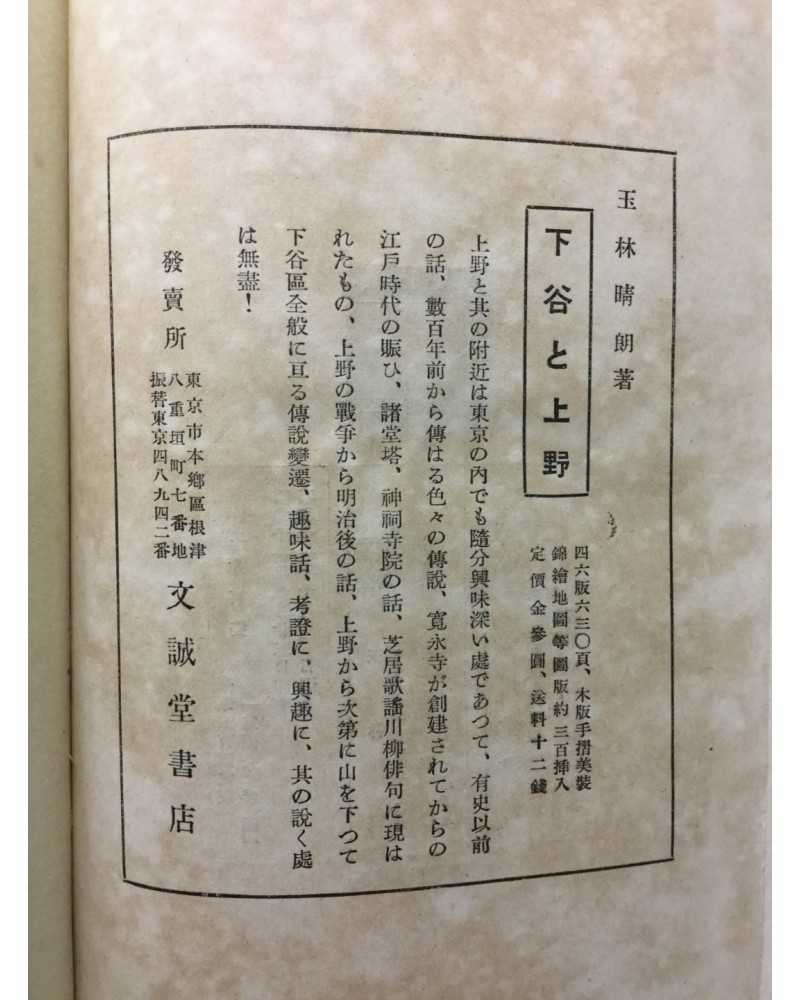 玉林晴朗著
下谷と上野
四六版六三〇頁、木版手摺美裝
錦繪地圖等圖版約三百挿入
定價金參圓、送料十二錢
上野と其の附近は東京の內でも隨分興味深い處であつて、有史以前
の話、數百年前から傳はる色々の傳說、寬永寺が創建されてからの
江戶時代の賑ひ、諸堂塔、神祠寺院の話、芝居歌謠川柳俳句に現は
れたもの、上野の戰爭から明治後の話、上野から次第に山を下つて
下谷區全般に亘る傳說變遷、趣味話、考證に、興趣に、其の說く處
は無盡！
發賣所
東京市本鄕區根津
八重垣町七番地
振替東京四八九四二番
文誠堂書店